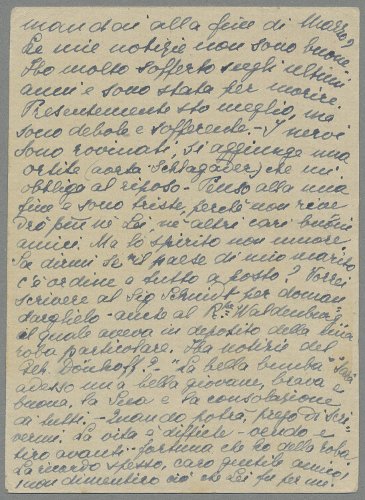 mandai alla fine di Marzo?
Le mie notizie non sono buone.
Ho molto sofferto negli ultimi
anni e sono stata per morire.
Presentemente sto meglio, ma
sono debole e sofferente - I nervi
sono rovinati, si aggiunge una
ortite (aorta-Schlagader) che mi
obbliga al riposo - Penso alla mia
fine e sono triste perchè non rive
drò più nè Lei, nè altri cari buoni
amici. Ma lo spirito non muore.
Sa dirmi se al paese di mio marito
c'è ordine e tutto a posto? Vorrei
scrivere al Sig. Schmidt per doman
darglielo - anche al Waldenburg
il quale aveva in deposito della mia
roba particolare. Ha notizie del
Dönhoff? - La bella bimba
adesso una bella giovane, brava e
buona, la e la consolazione
di tutti - Quando potrà, prego di scri
vermi. La vita è difficile - vendo e
tiro avanti - fortuna che ho della roba
La ricordo spesso, caro gentile amico,
non dimentico ciò che Lei fu per mi.